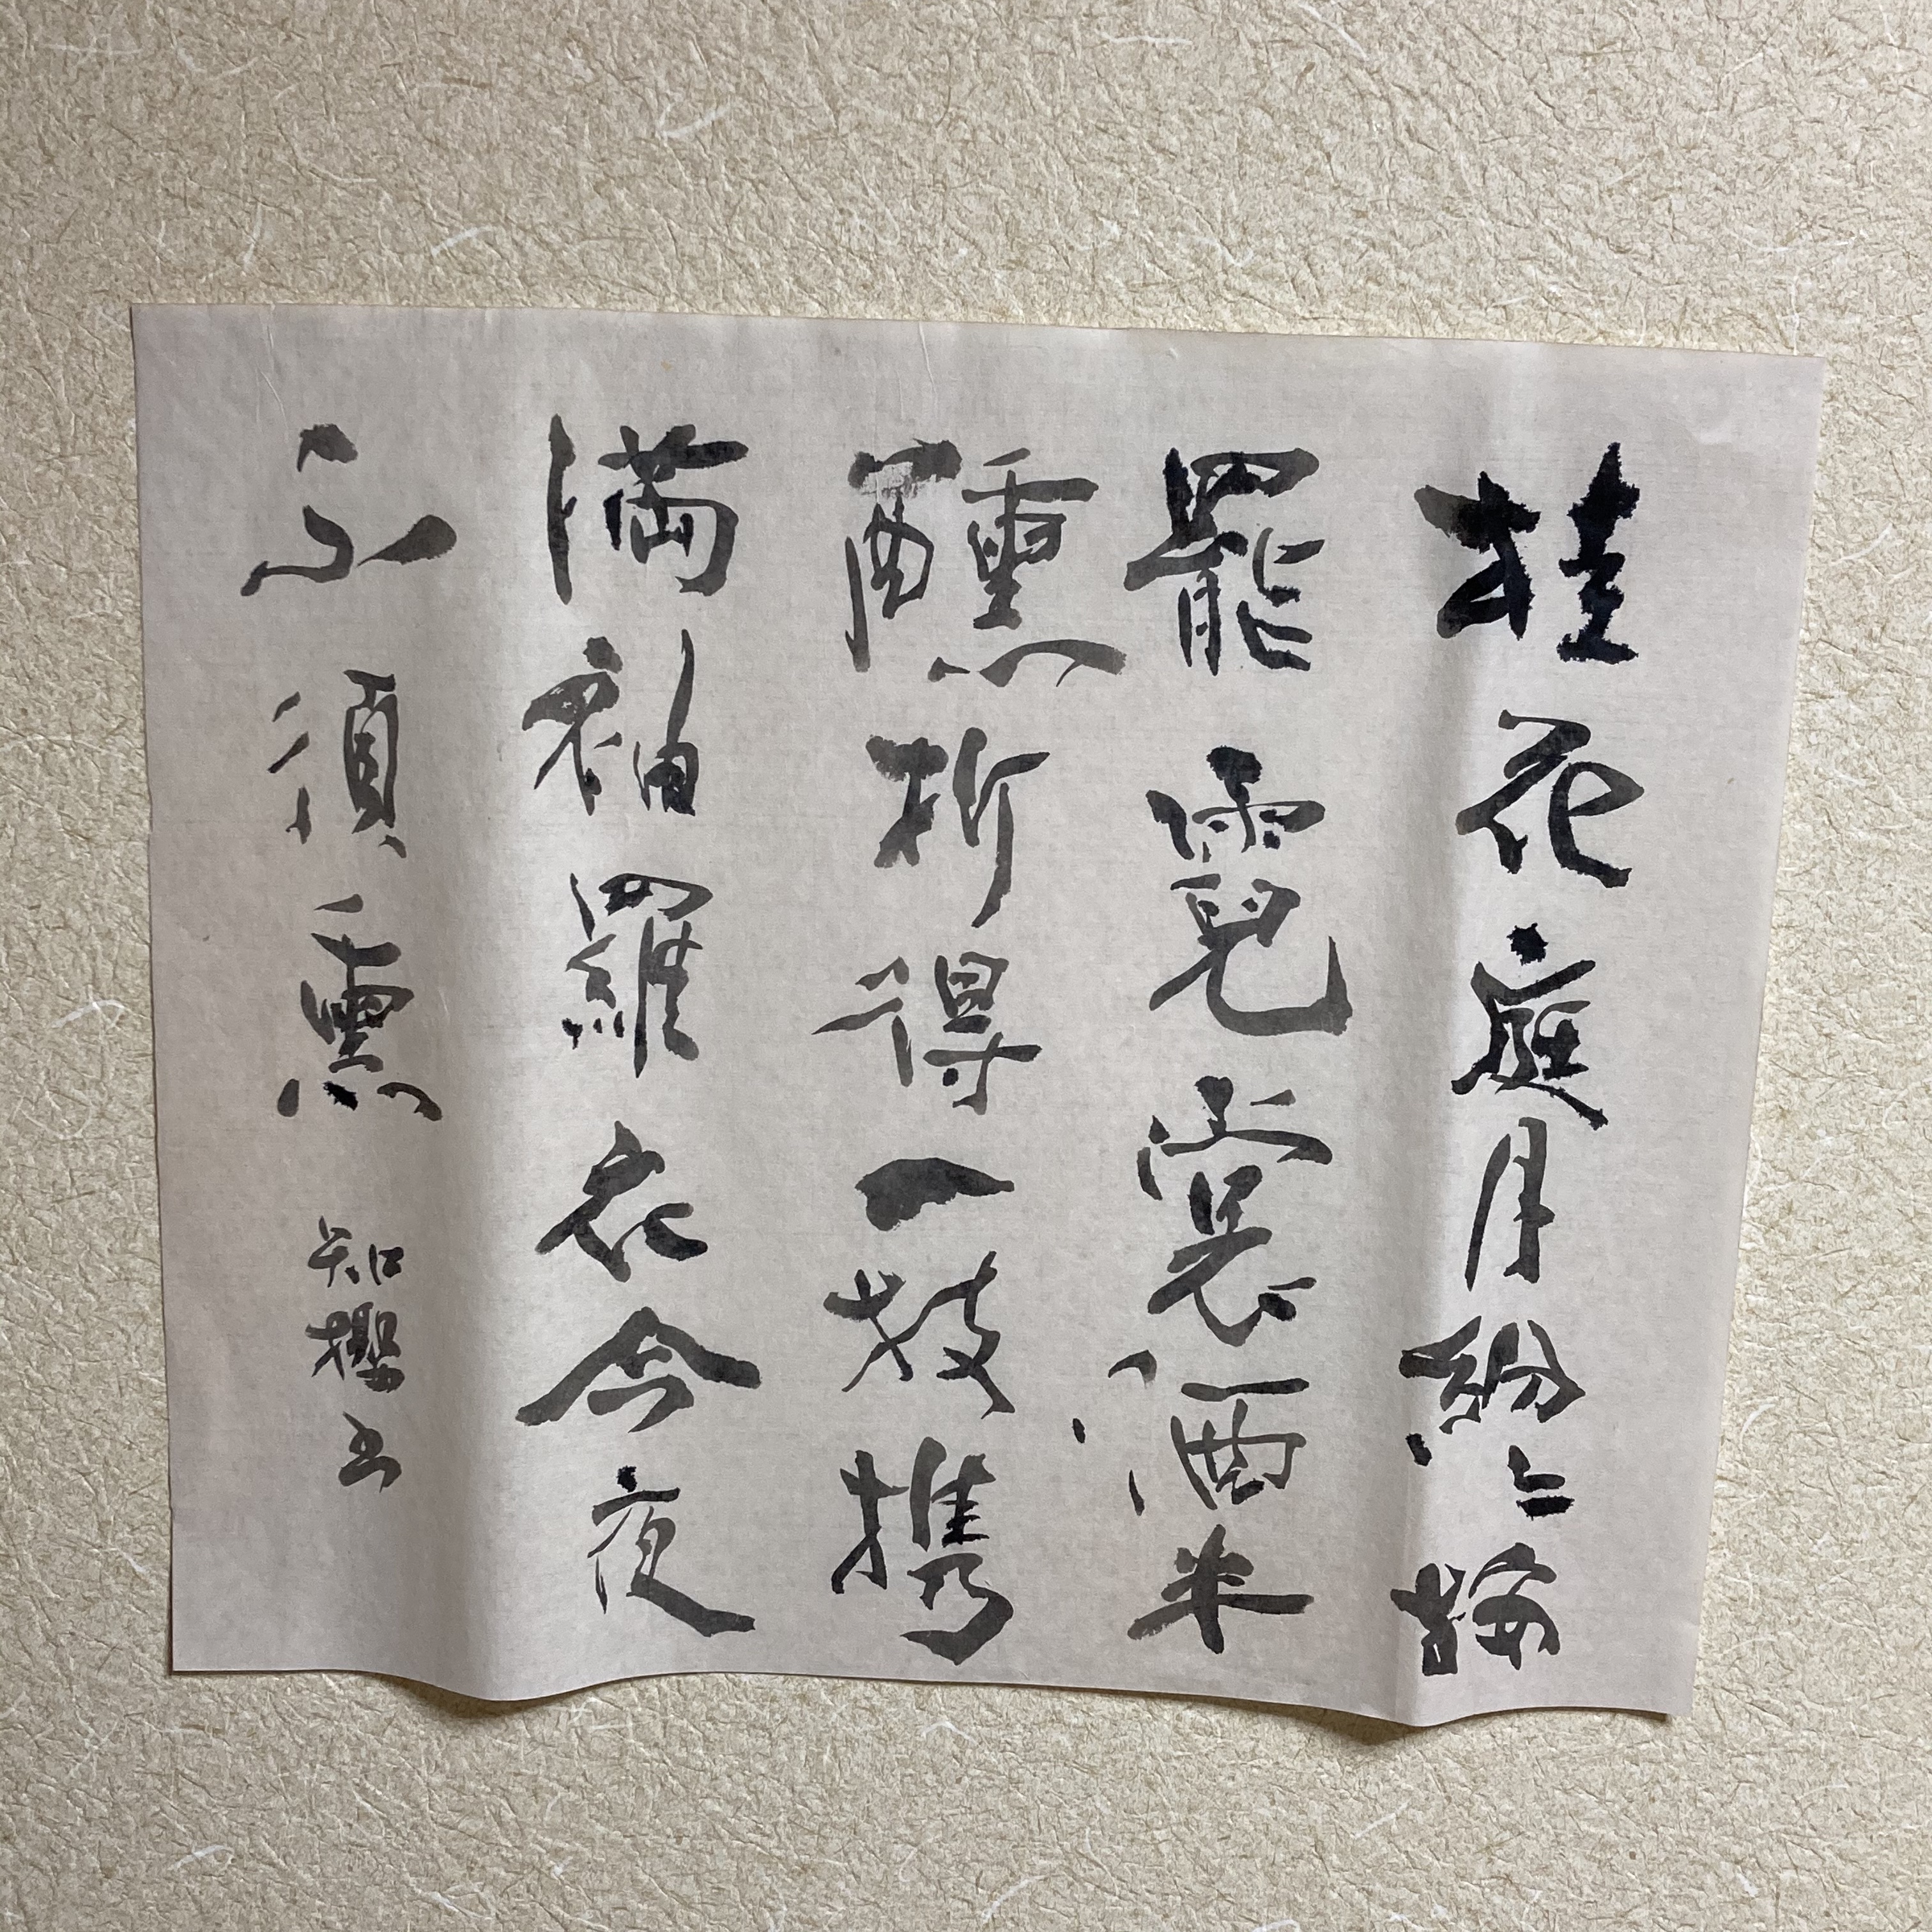 桂花庭月紛々按
罷霓裳酒半
醺折得一枝携
満袖羅衣今夜
不須熏 知櫻書